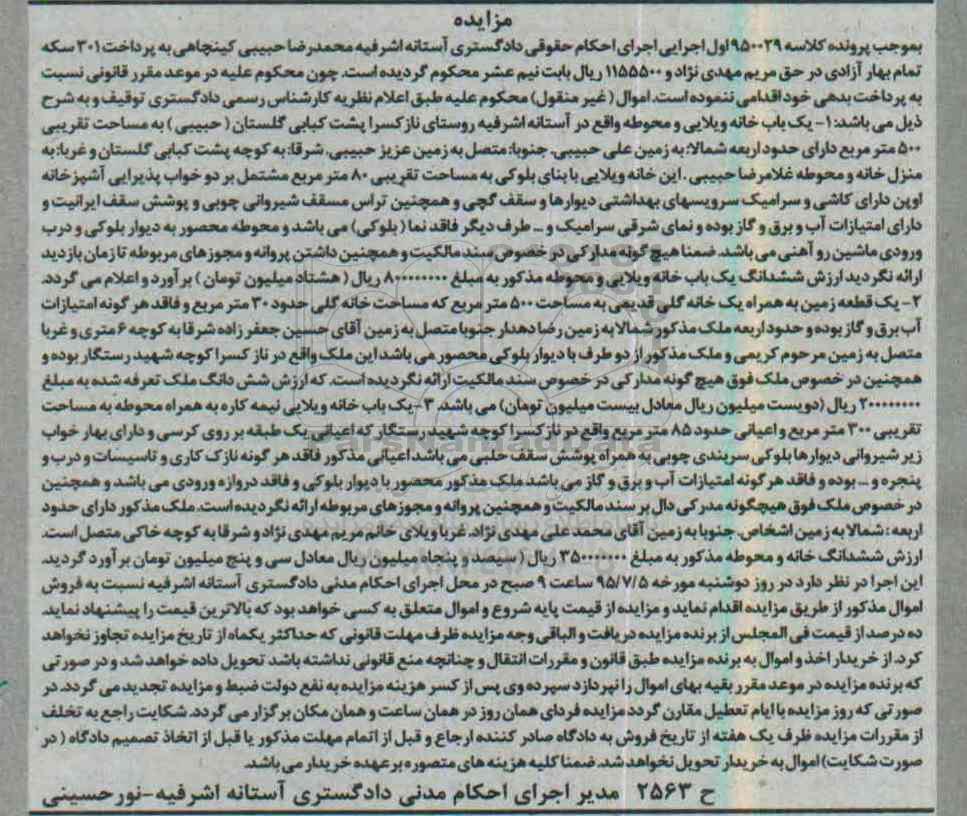 مزایده
بموجب پرونده کلاسه ۹۵۰۰۲۹ اول اجرایی اجرای احکام حقوقی دادگستری آستانه اشرفیه محمدرضا حبیبی کینچاهی به پرداخت ۳۰۱ سکه
تمام بهار آزادی در حق مریم مهدی نژاد و ۱۱۵۵۵۰۰ ریال بابت نیم عشر محکوم گردیده است. چون محکوم علیه در موعد مقرر قانونی نسبت
به پرداخت بدهی خود اقدامی ننموده است. اموال (غیر منقول) محکوم علیه طبق اعلام نظریه کارشناس رسمی دادگستری توقیف و به شرح
ذیل می باشد: ۱- یک باب خانه ویلایی و محوطه واقع در آستانه اشرفیه روستای نازکسرا پشت کبابی گلستان (حبیبی) به مساحت تقریبی
۵۰۰ متر مربع دارای حدود اربعه شمالا: به زمین علی حبیبی. جنوبا: متصل به زمین عزیز حبیبی. شرقا: به کوچه پشت کبابی گلستان و غربا: به
منزل خانه و محوطه غلامرضا حبیبی . این خانه ویلایی با بنای بلوکی به مساحت تقریبی ۸۰ متر مربع مشتمل بر دو خواب پذیرایی آشپزخانه
اوپن دارای کاشی و سرامیک سرویسهای بهداشتی دیوارها و سقف گچی و همچنین تراس مسقف شیروانی چوبی و پوشش سقف ایرانیت و
دارای امتیازات آب و برق و گاز بوده و نمای شرقی سرامیک و ... طرف دیگر فاقد نما (بلوکی) می باشد و محوطه محصور به دیوار بلوکی و درب
ورودی ماشین رو آهنی می باشد. ضمنا هیچ گونه مدارکی در خصوص سند مالکیت و همچنین داشتن پروانه و مجوزهای مربوطه تا زمان بازدید
ارائه نگردید ارزش ششدانگ یک باب خانه ویلایی و محوطه مذکور به مبلغ ۸۰۰۰۰۰۰۰۰ ریال (هشتاد میلیون تومان) برآورد و اعلام می گردد.
۲- یک قطعه زمین به همراه یک خانه گلی قدیمی به مساحت ۵۰۰ متر مربع که مساحت خانه گلی حدود ۳۰ متر مربع و فاقد هر گونه امتیازات
آب برق و گاز بوده و حدود اربعه ملک مذکور شمالا به زمین رضا دهدار جنوبا متصل به زمین آقای حسین جعفر زاده شرقا به کوچه ۶ متری و غربا
متصل به زمین مرحوم کریمی و ملک مذکور از دو طرف با دیوار بلوکی محصور می باشد این ملک واقع در نازکسرا کوچه شهید رستگار بوده و
همچنین در خصوص ملک فوق هیچ گونه مدارکی در خصوص سند مالکیت ارائه نگردیده است. که ارزش شش دانگ ملک تعرفه شده به مبلغ
۲۰۰۰۰۰۰۰۰ ریال (دویست میلیون ریال معادل بیست میلیون تومان) می باشد. ۳- یک باب خانه ویلایی نیمه کاره به همراه محوطه به مساحت
تقریبی ۳۰۰ متر مربع و اعیانی حدود ۸۵ متر مربع واقع در نازکسرا کوچه شهید رستگار که اعیانی یک طبقه بر روی کرسی و دارای بهار خواب
زیر شیروانی دیوارها بلوکی سربندی چوبی به همراه پوشش سقف حلبی می باشد اعیانی مذکور فاقد هر گونه نازک کاری و تاسیسات و درب و
پنجره و ... بوده و فاقد هر گونه امتیازات آب و برق و گاز می باشد ملک مذکور محصور با دیوار بلوکی و فاقد دروازه ورودی می باشد و همچنین
در خصوص ملک فوق هیچگونه مدرکی دال بر سند مالکیت و همچنین پروانه و مجوزهای مربوطه ارائه نگردیده است. ملک مذکور دارای حدود
اربعه: شمالا به زمین اشخاص. جنوبا به زمین آقای محمد علی مهدی نژاد. غربا ویلای خانم مریم مهدی نژاد و شرقا به کوچه خاکی متصل است.
ارزش ششدانگ خانه و محوطه مذکور به مبلغ ۳۵۰۰۰۰۰۰۰ ریال (سیصد و پنجاه میلیون ریال معادل سی و پنج میلیون تومان برآورد گردید.
این اجرا در نظر دارد در روز دوشنبه مورخه ۹۵/۷/۵ ساعت ۹ صبح در محل اجرای احکام مدنی دادگستری آستانه اشرفیه نسبت به فروش
اموال مذکور از طریق مزایده اقدام نماید و مزایده از قیمت پایه شروع و اموال متعلق به کسی خواهد بود که بالاترین قیمت را پیشنهاد نماید.
ده درصد از قیمت فی المجلس از برنده مزایده دریافت و الباقی وجه مزایده ظرف مهلت قانونی که حداکثر یکماه از تاریخ مزایده تجاوز نخواهد
کرد. از خریدار اخذ و اموال به برنده مزایده طبق قانون و مقررات انتقال و چنانچه منع قانونی نداشته باشد تحویل داده خواهد شد و در صورتی
که برنده مزایده در موعد مقرر بقیه بهای اموال را نپردازد سپرده وی پس از کسر هزینه مزایده به نفع دولت ضبط و مزایده تجدید می گردد. در
صورتی که روز مزایده با ایام تعطیل مقارن گردد مزایده فردای همان روز در همان ساعت و همان مکان برگزار می گردد. شکایت راجع به تخلف
از مقررات مزایده ظرف یک هفته از تاریخ فروش به دادگاه صادر کننده ارجاع و قبل از اتمام مهلت مذکور یا قبل از اتخاذ تصمیم دادگاه (در
صورت شکایت) اموال به خریدار تحویل نخواهد شد. ضمنا کلیه هزینه های متصوره بر عهده خریدار می باشد.
ح ۲۵۶۳ مدیر اجرای احکام مدنی دادگستری آستانه اشرفیه-نورحسینی